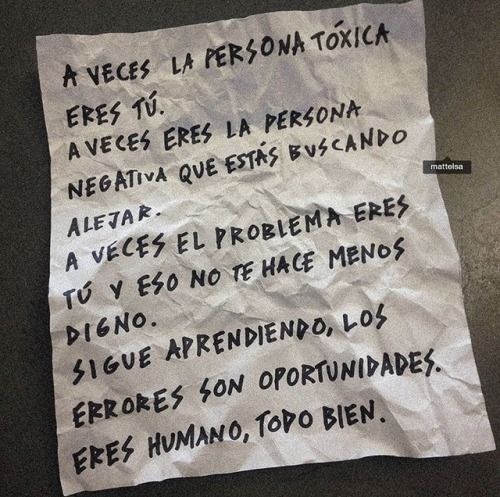 A VECES LA PERSONA TÓXICA
ERES TÚ.
A VECES ERES LA PERSONA
NEGATIVA QUE ESTÁS BUSCANDO
ALEJAR.
A VECES EL PROBLEMA ERES
TÚ Y ESO NO TE HACE MENOS
DIGNO.
SIGUE APRENDIENDO, LOS
ERRORES SON OPORTUNIDADES.
ERES HUMANO, TODO BIEN.
mattelsa